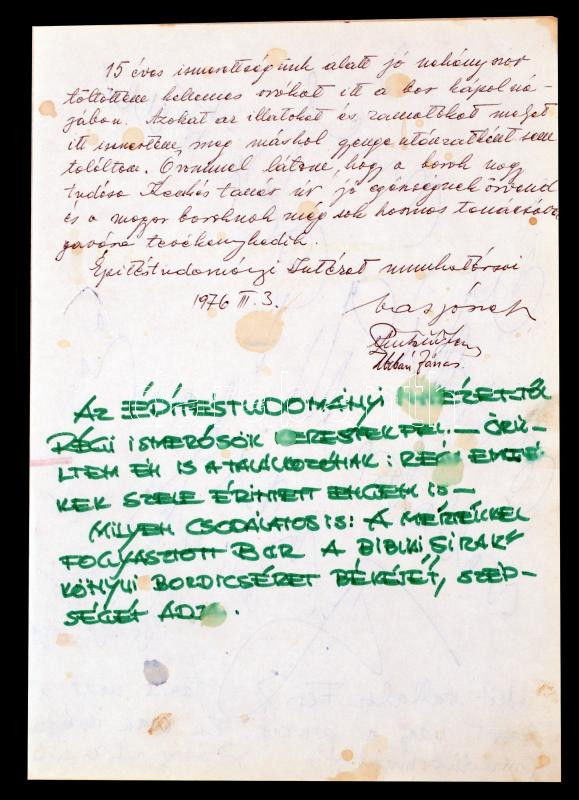 15 éves ismerettségünk alatt jó néhányszor
töltöttem kellemes órákat itt a bor kápolná-
jában. Azokat az illatokat és zamatokat melyet
itt ismertem meg máshol gyenge utóízatként sem
találtam. Örömmel látom, hogy a borok nagy
tudósa Kecskés tanár úr jó egészségnek örvend
és a magyar boroknak még sok hasznos
tevékenykedik.
Építéstudományi Intézet munkatársai
1976 II. 3.
Urbán János
AZ ÉPÍTÉSTUDOMÁNYI INTÉZETTŐL
RÉGI ISMERŐSÖK KERESTEK FEL. – ÖRÜ-
LTEM ÉN IS A TALÁLKOZÓNAK: RÉGI EMLÉ-
KEK SZELE ÉRINTETT ENGEM IS –
MILYEN CSODÁLATOS IS: A MÉRTÉKKEL
FOGYASZTOTT BOR A BIBLIAI SIRÁK-
KÖNYVI BORDICSÉRET BÉKÉJÉT, SZÉP-
SÉGÉT ADJA.